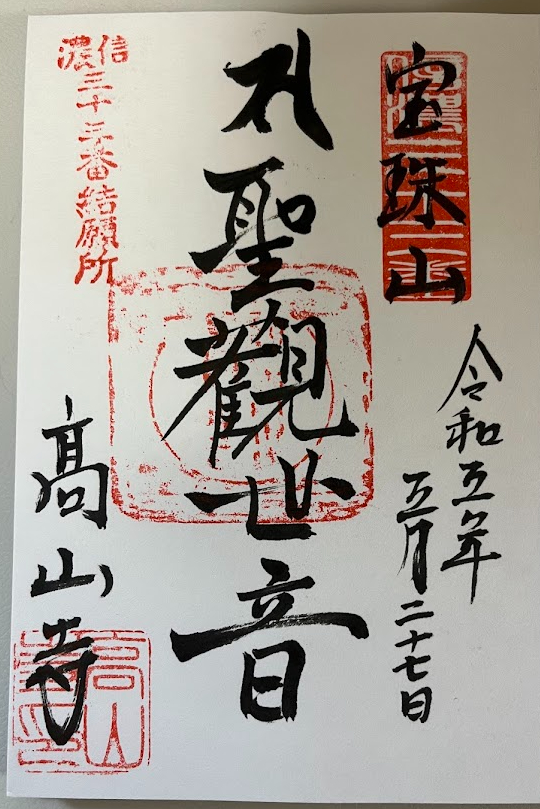 宝珠山
令和五年
五月二十七日
聖觀世音
信濃三十三番結願所
高山寺